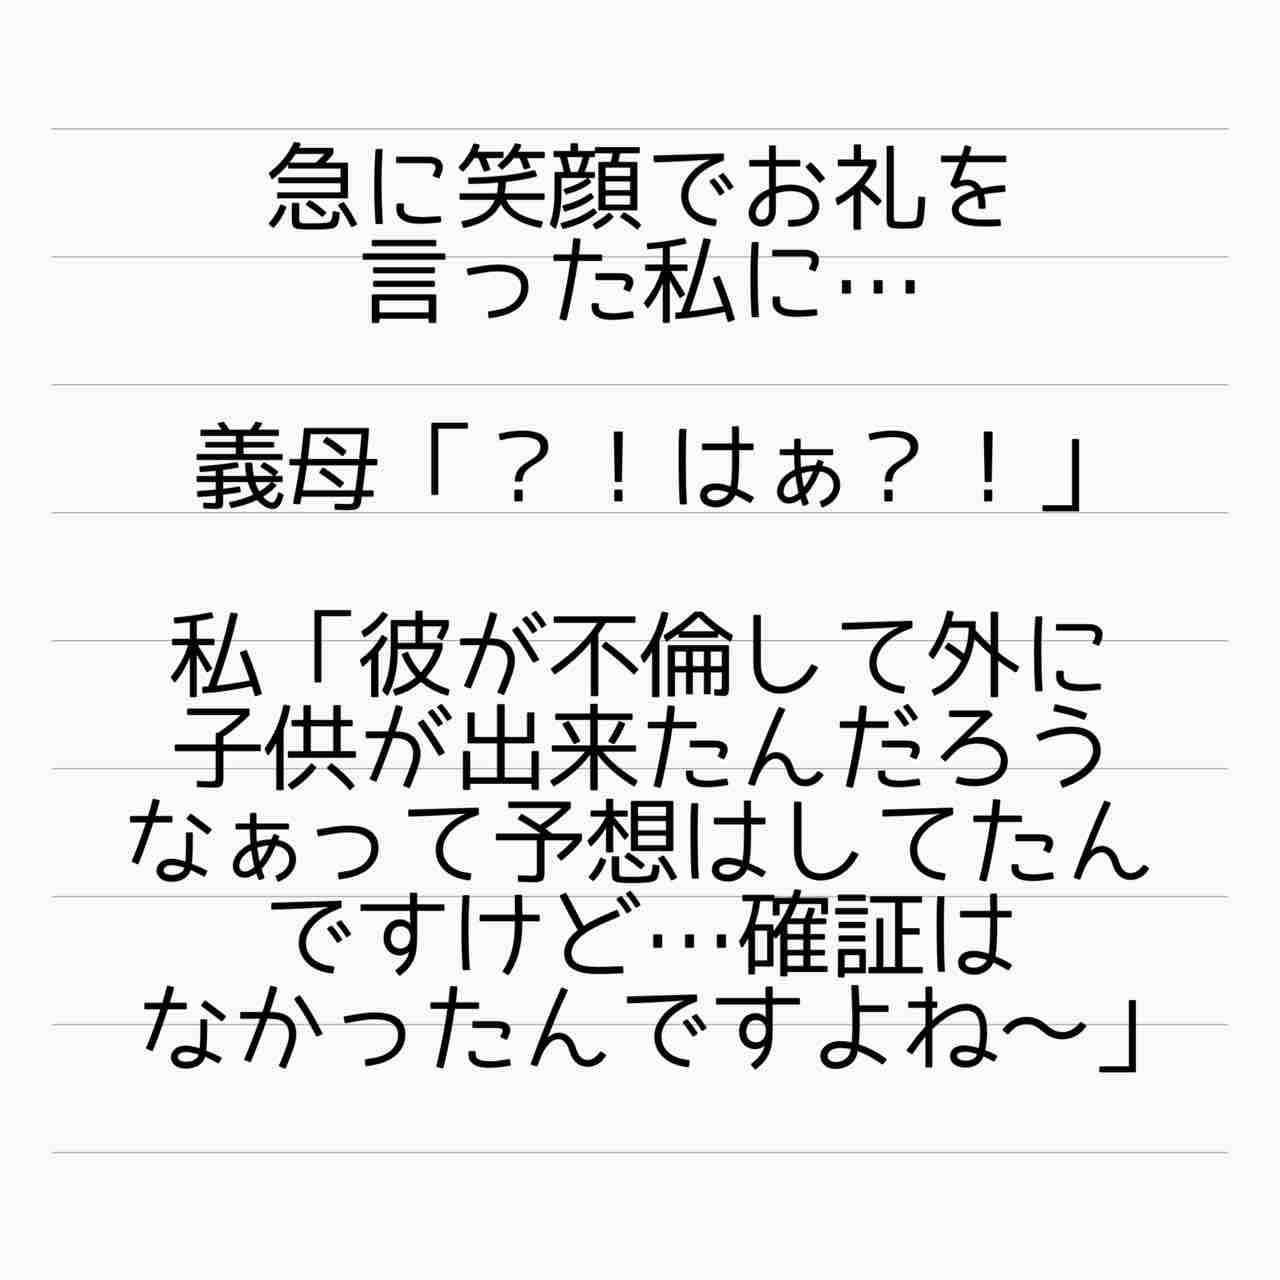 急に笑顔でお礼を
言った私に…
義母「？！はぁ？！」
私「彼が不倫して外に
子供が出来たんだろう
なぁって予想はしてたん
ですけど…確証は
なかったんですよね〜」